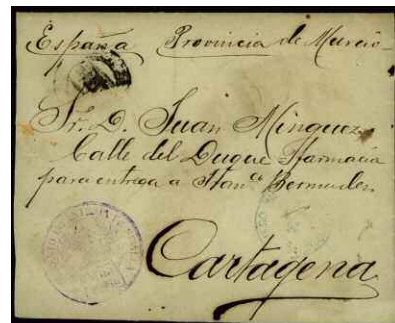 España Provincia de Murcia
Sr. D. Juan Minguez
Calle del Duque Farmacia
para entrega a Fran.ca Bermudez
Cartagena